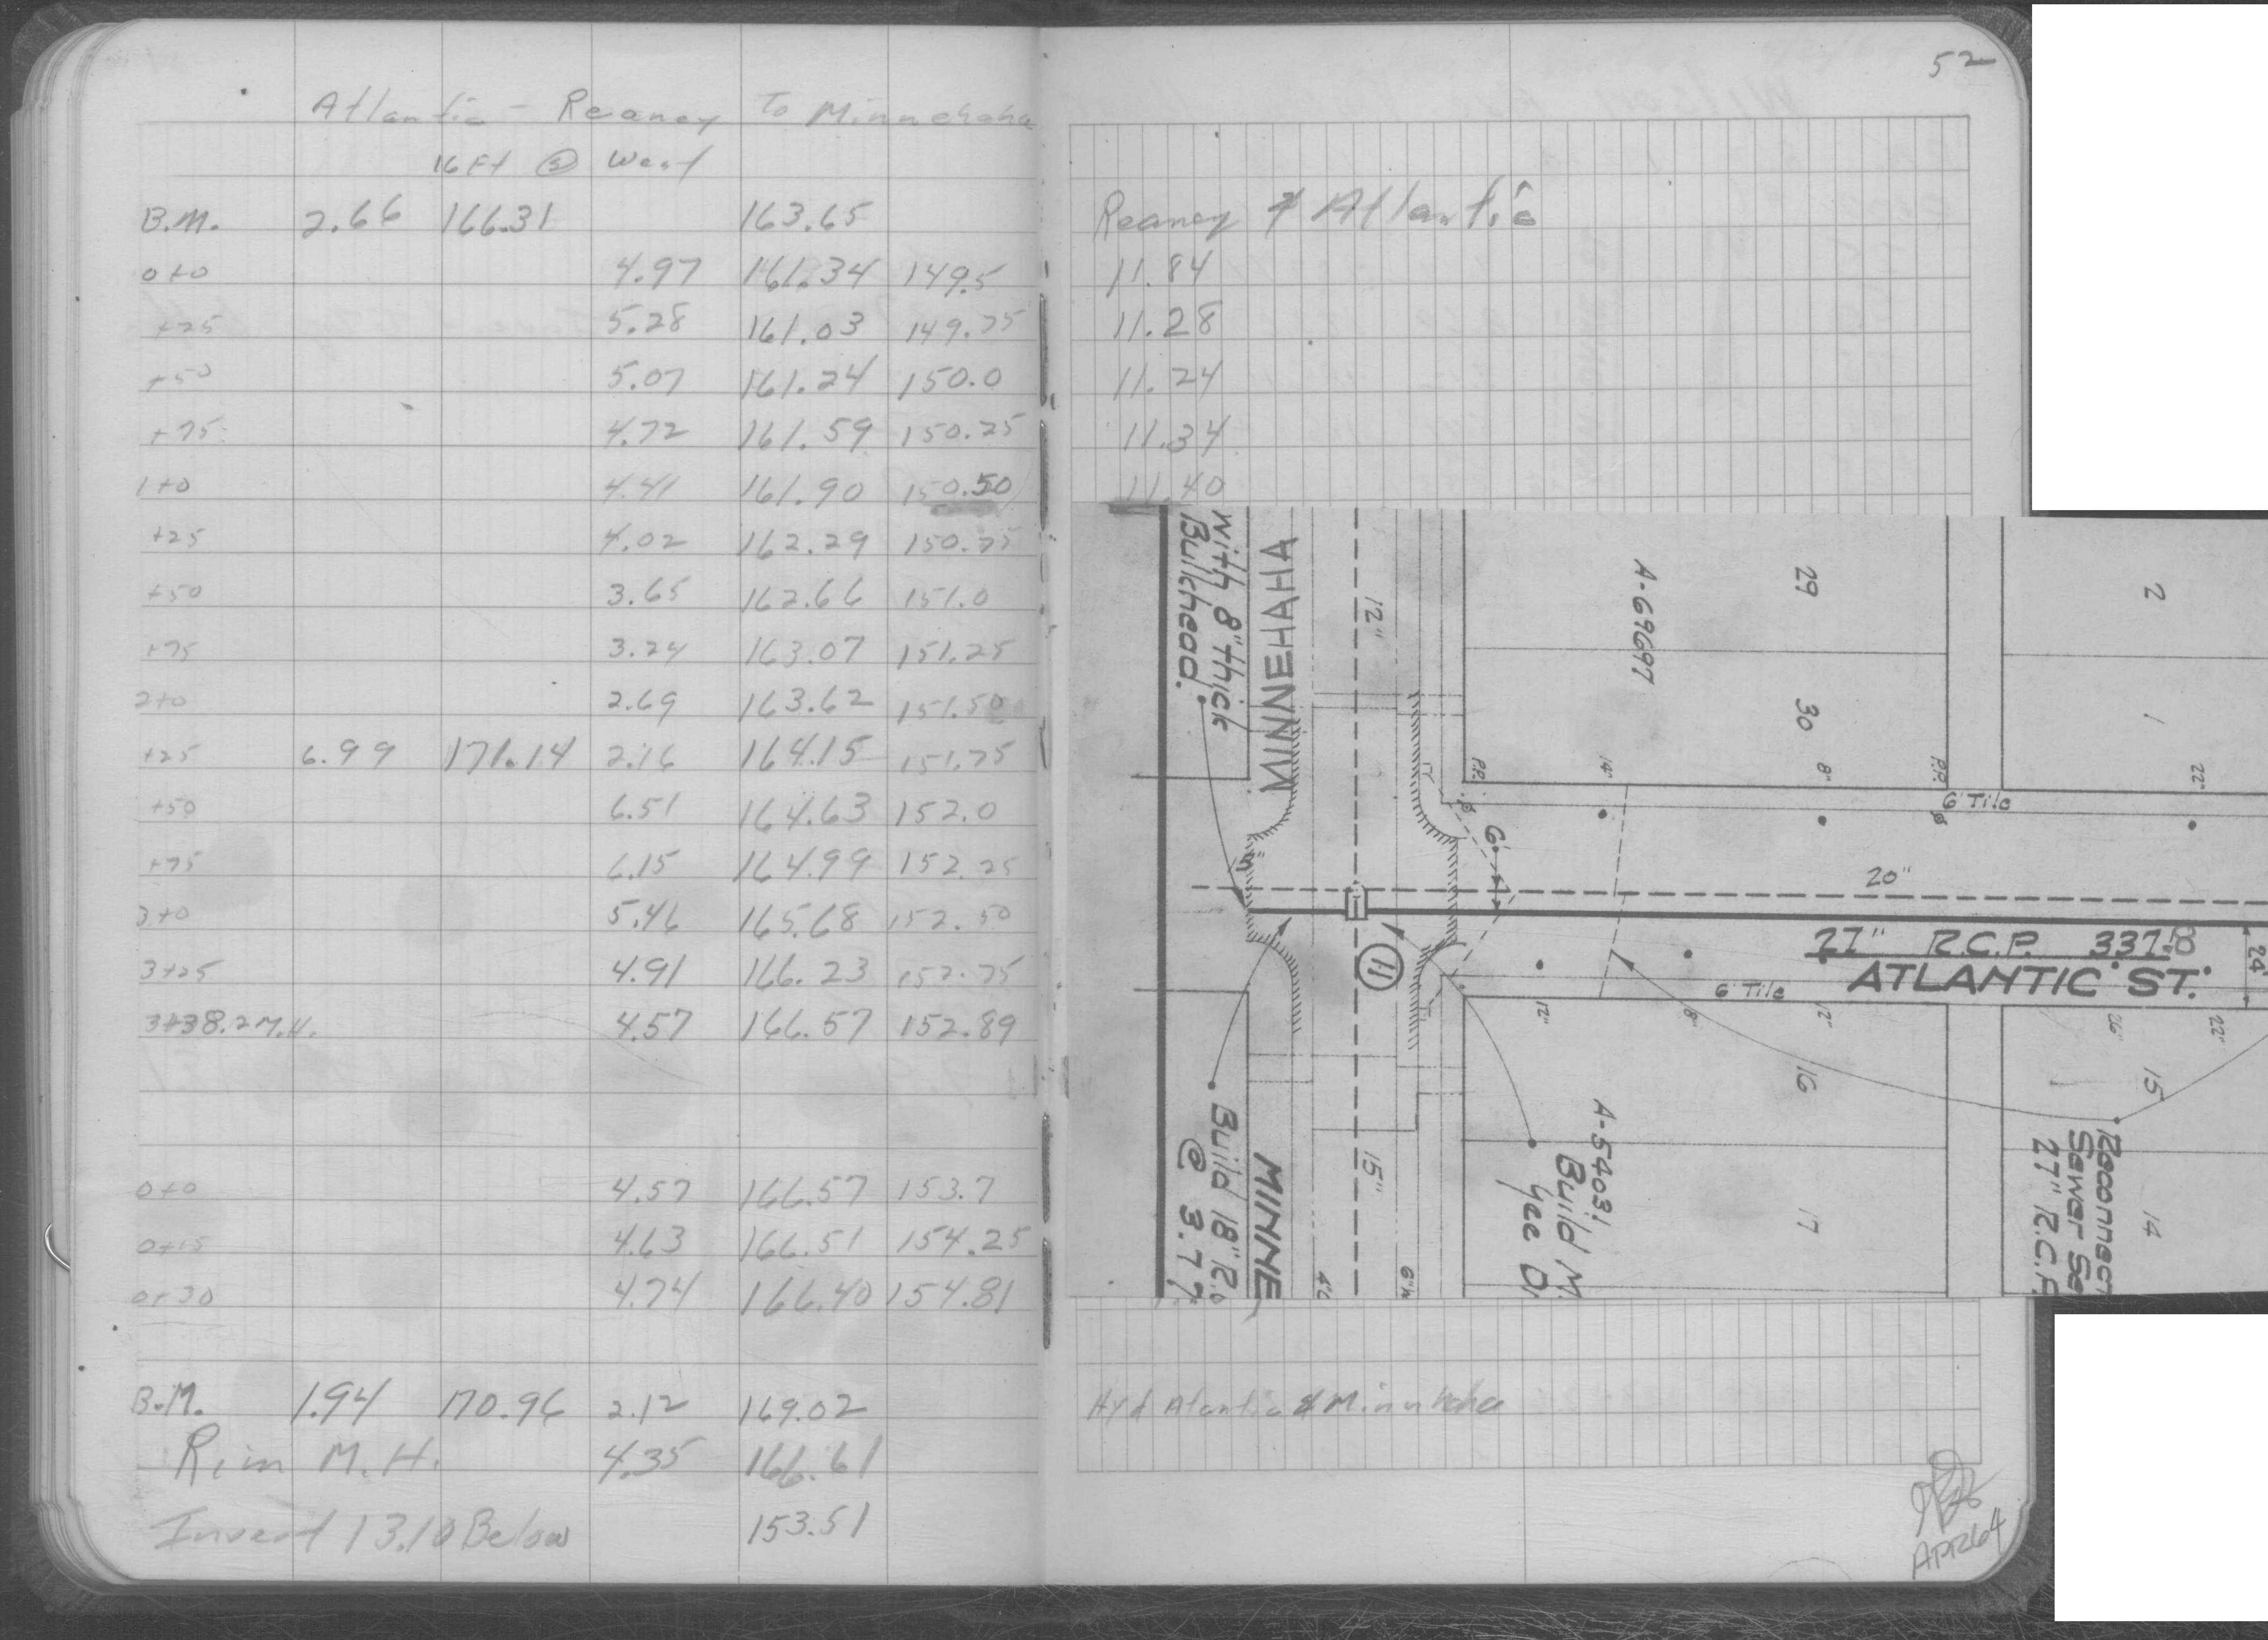 52
Atlantic - Reaney to Minnehaha
16 Ft @ West
B.M. 2.66 166.31 163.65 Reaney & Atlantic
0+0 4.97 161.34 149.5 11.84
+25 5.28 161.03 149.75 11.28
+50 5.07 161.24 150.0 11.24
+75 4.72 161.59 150.25 11.34
1+0 4.41 161.90 150.50 11.40
+25 4.02 162.29 150.75
+50 3.65 162.66 151.0
+75 3.24 163.07 151.25
2+0 2.69 163.62 151.50
+25 6.99 171.14 2.16 164.15 151.75
+50 6.51 164.63 152.0
+75 6.15 164.99 152.25
3+0 5.46 165.68 152.50
3+25 4.91 166.23 152.75
3+38.2 M.H. 4.57 166.57 152.89
0+0 4.57 166.57 153.7
0+15 4.63 166.51 154.25
0+30 4.74 166.40 154.81
B.M. 1.94 170.96 2.12 169.02 Hyd Atlantic & Minnehaha
Rim M.H. 4.35 166.61
Invert 13.10 Below 153.51
with 8" thick
Bulkhead.
MINNEHAHA
12"
A-69697
29
30
2
1
P.P.
14"
8"
P.P.
22"
6' Tile
6'
20"
27" R.C.P. 337.8
ATLANTIC ST.
24'
11
6' Tile
12"
8"
12"
26"
22"
16
15
17
14
A-54031
Build M.
Reconnect
Sewer Se
27" R.C.P.
Build 18" R.C
@ 3.77
MINNE
15"
APR64